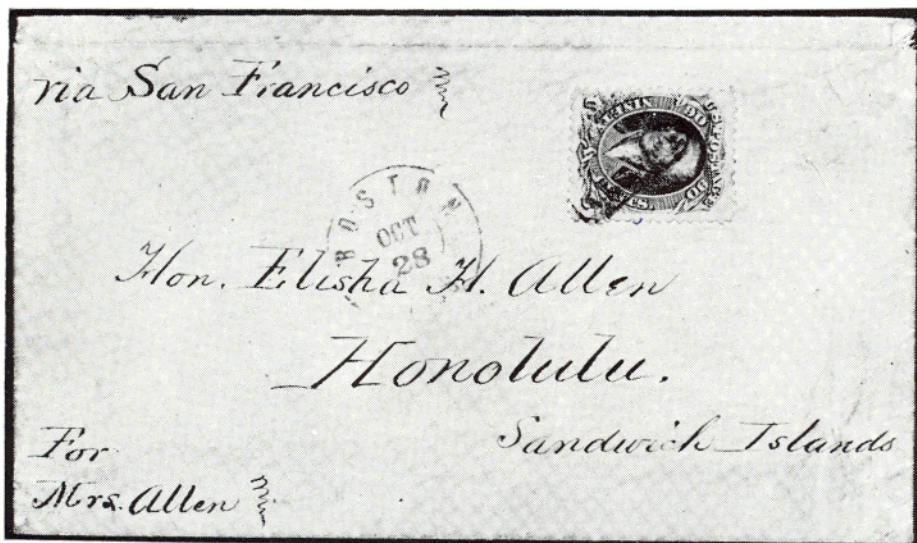 via San Francisco
BOSTON
OCT
28
Hon. Elisha H. Allen
Honolulu.
Sandwich Islands
For
Mrs. Allen